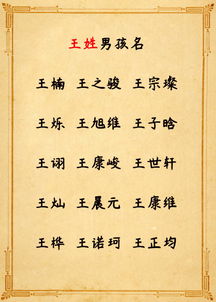 王姓男孩名
王楠 王之骏 王宗璨
王烁 王旭维 王子晗
王诩 王康峻 王世轩
王灿 王晨元 王康维
王桦 王诺珂 王正均